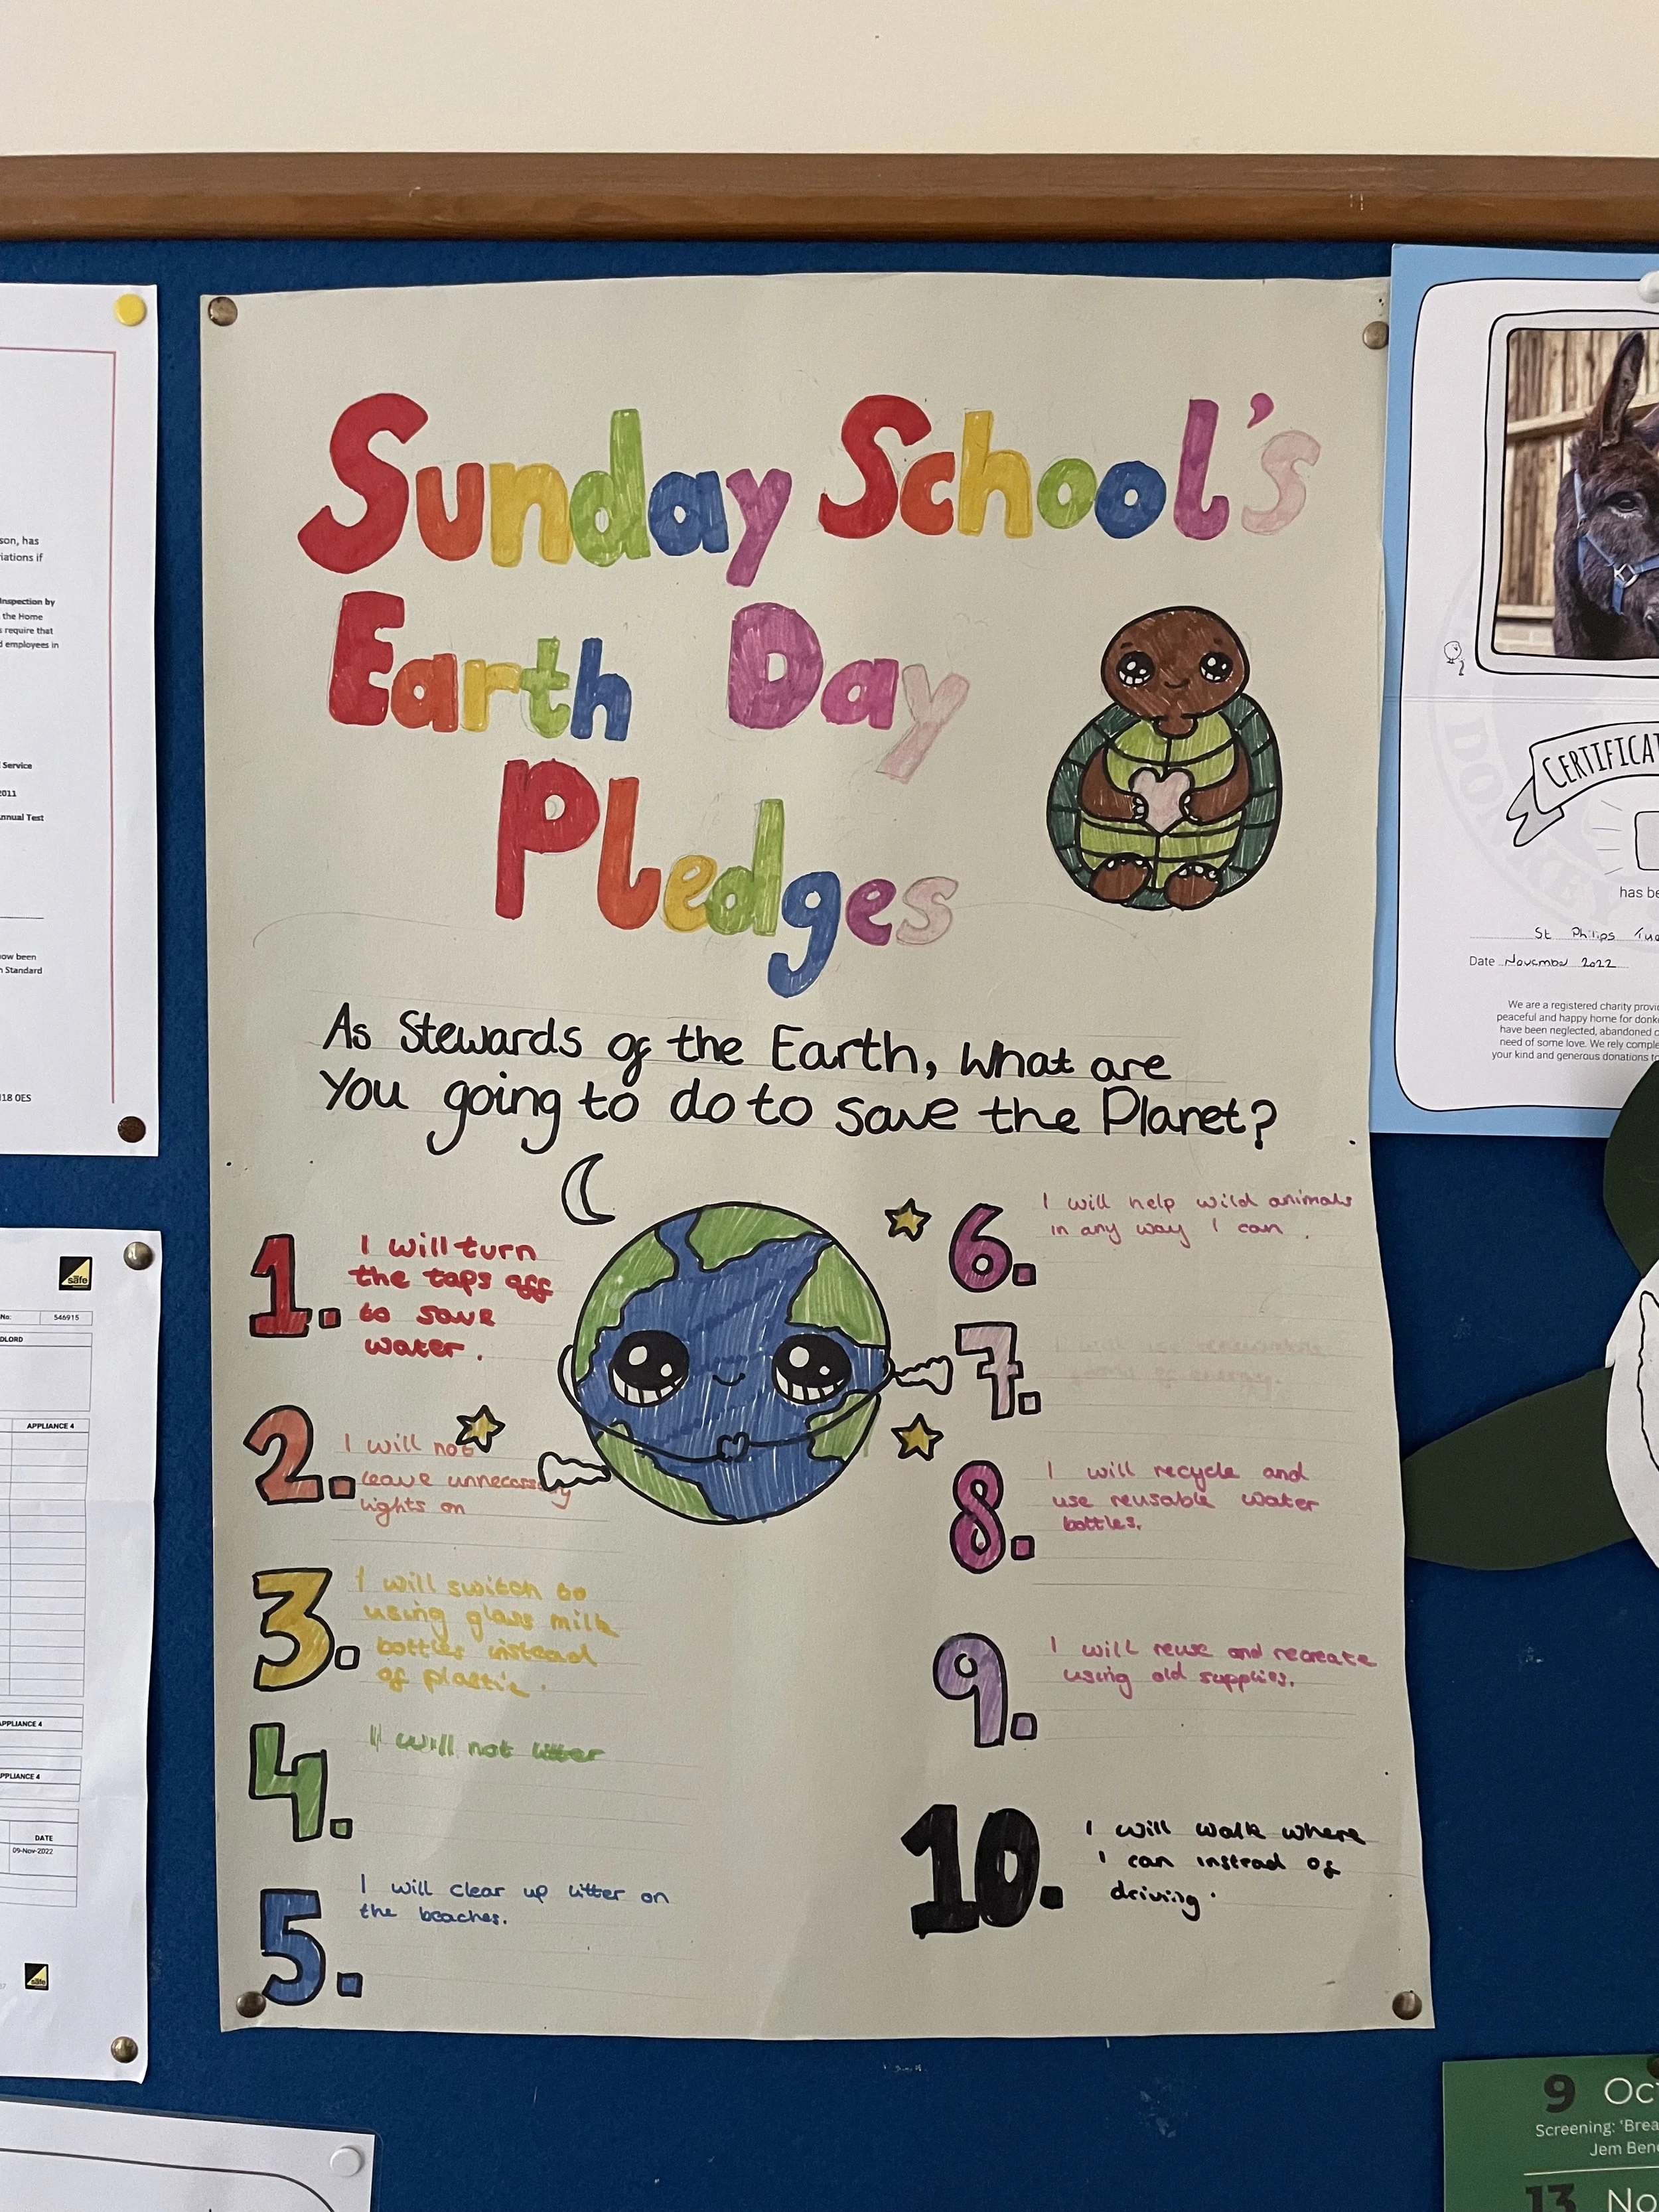 Sunday School's
Earth Day
Pledges
As Stewards of the Earth, What are
You going to do to save the Planet?
1. I will turn
the taps off
to save
water.
2. I will not
leave unnecessary
lights on
3. I will switch to
using glass milk
bottles instead
of plastic.
4. I will not litter
5. I will clear up litter on
the beaches.
6. I will help wild animals
in any way I can.
7. I will use renewable
of energy.
8. I will recycle and
use reusable water
bottles.
9. I will reuse and recreate
using old supplies.
10. I will walk where
I can instead of
driving.
son, has
iations if
Inspection by
the Home
s require that
d employees in
Service
2011
nnual Test
ow been
n Standard
18 0ES
safe
No: 546915
DLORD
APPLIANCE 4
APPLIANCE 4
APPLIANCE 4
DATE
09-Nov-2022
safe
DONKEY
CERTIFICAT
has be
St Philips
Date November 2022
We are a registered charity provi
peaceful and happy home for donk
have been neglected, abandoned o
need of some love. We rely comple
your kind and generous donations to
9 Oct
Screening: 'Brea
Jem Bend
13 No